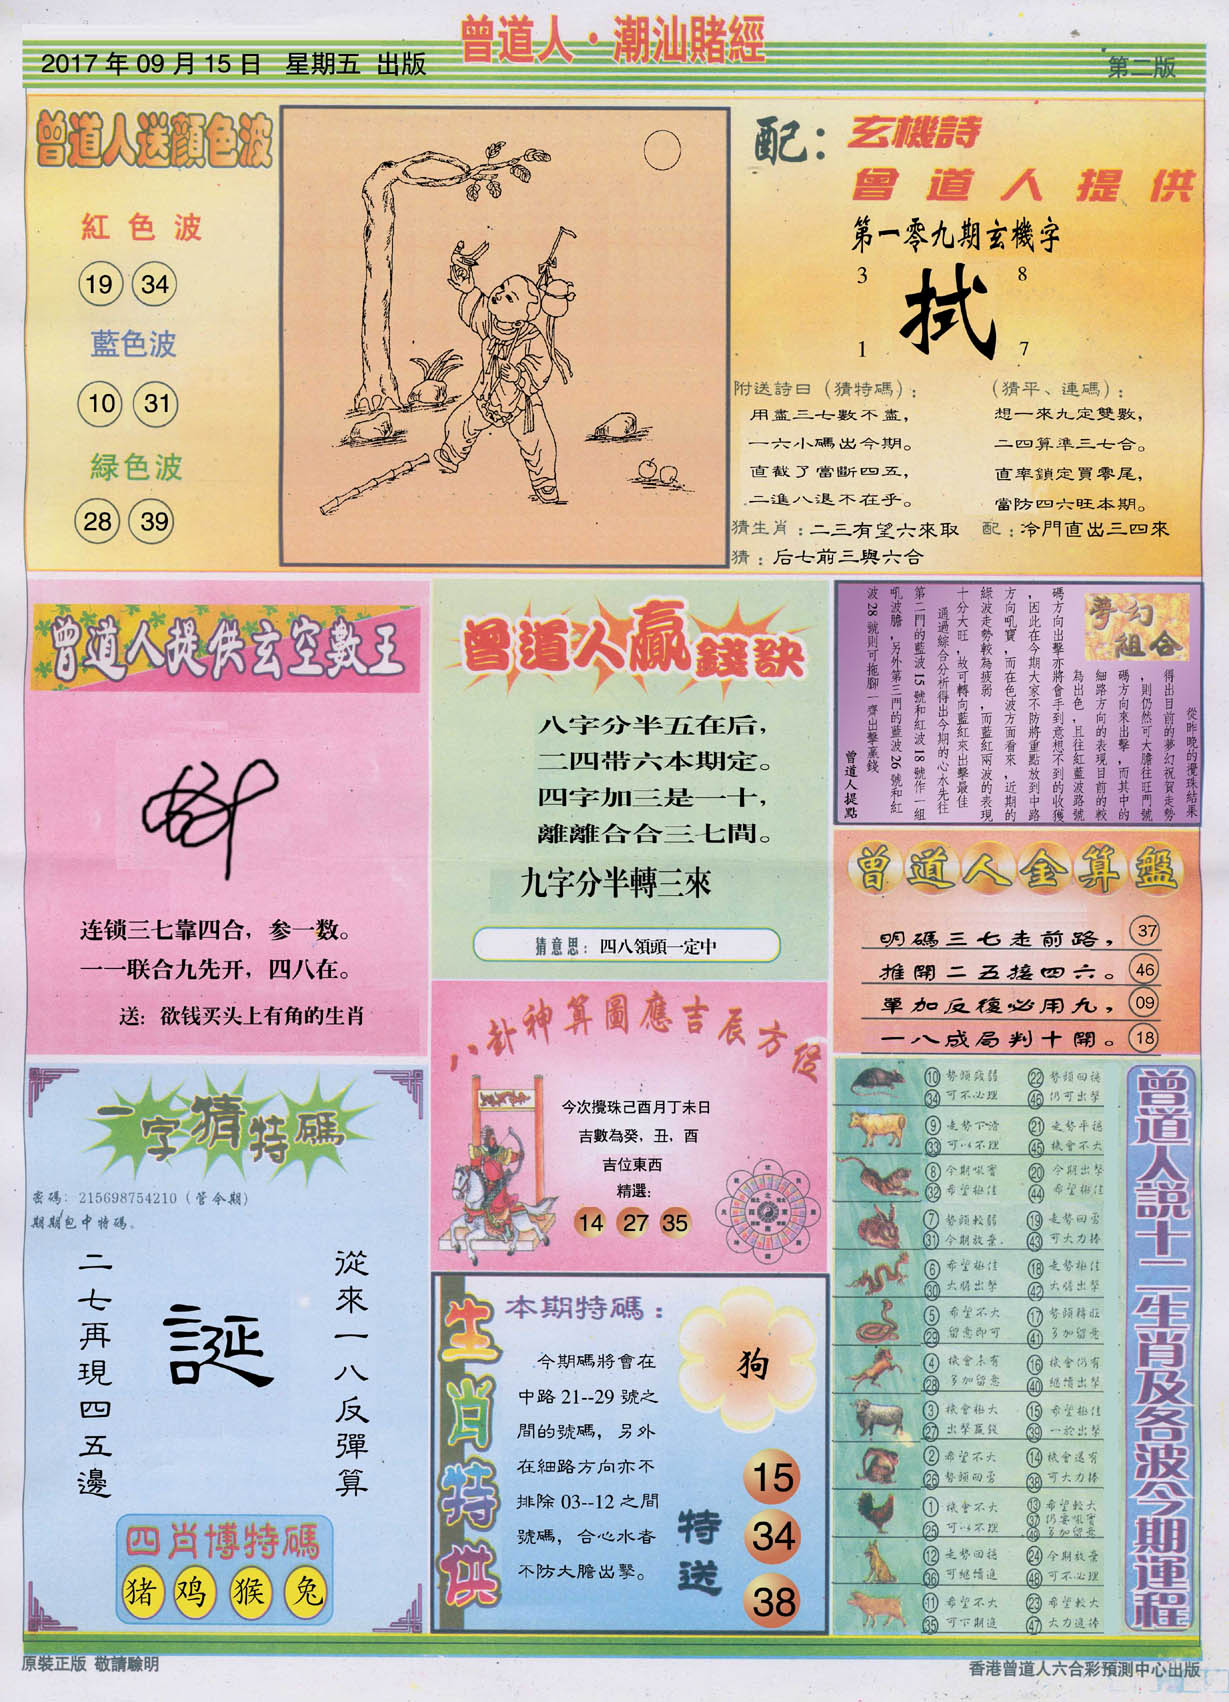 曾道人·潮汕賭經
2017年09月15日 星期五 出版
第二版
曾道人送顏色波
紅色波
19 34
藍色波
10 31
緑色波
28 39
配：玄機詩
曾道人提供
第一零九期玄機字
3 8
拭
1 7
附送詩曰（猜特碼）：
用盡三七數不盡，
一六小碼出今期。
直截了當斷四五，
二進八退不在乎。
（猜平、連碼）：
想一來九定雙數，
二四算準三七合。
直率鎖定買零尾，
當防四六旺本期。
猜生肖：二三有望六來取 配：冷門直出三四來
猜：后七前三與六合
曾道人提供玄空數王
连锁三七靠四合，参一数。
一一联合九先开，四八在。
送：欲钱买头上有角的生肖
曾道人贏錢訣
八字分半五在后，
二四带六本期定。
四字加三是一十，
離離合合三七間。
九字分半轉三來
猜意思：四八領頭一定中
夢幻組合
從昨晚的攪珠結果
得出目前的夢幻祝賀走勢
，則仍然可大膽往旺門號
碼方向來出擊，而其中的
細路方向的表現目前的較
為出色，且往紅藍波路號
碼方向出擊亦將會手到意想不到的收獲
，因此在今期大家不防將重點放到中路
方向吼寶，而在色波方面看來，近期的
綠波走勢較為疲弱，而藍紅兩波的表現
十分大旺，故可轉向藍紅來出擊最佳
通過綜合分析得出今期的心水先往
第二門的藍波15號和紅波18號作一組
吼波膽，另外第三門的藍波26號和紅
波28號則可拖腳一齊出擊贏錢
曾道人提點
曾道人金算盤
明碼三七走前路， 37
推開二五接四六。 46
單加反後必用九， 09
一八成局判十開。 18
八卦神算圖應吉辰方位
今次攪珠己酉月丁未日
吉數為癸，丑，酉
吉位東西
精選：
14 27 35
一字猜特碼
密碼：215698754210（管今期）
期期包中特碼。
從來一八反彈算
誕
二七再現四五邊
四肖博特碼
猪 鸡 猴 兔
生肖特供
本期特碼：
今期碼將會在
中路21--29號之
間的號碼，另外
在細路方向亦不
排除03--12之間
號碼，合心水者
不防大膽出擊。
狗
特送
15
34
38
曾道人説十二生肖及各波今期運程
10 勢頭疲弱 22 勢頭回穩
34 可不必理 46 仍可出擊
9 走勢下滑 21 走勢平穩
33 可以不理 45 機會不大
8 今期吼寶 20 今期出擊
32 希望極佳 44 希望極佳
7 勢頭較弱 19 走勢回勇
31 今期放棄 43 可大力捧
6 希望極佳 18 走勢極佳
30 大膽出擊 42 大膽出擊
5 希望不大 17 勢頭轉旺
29 留意即可 41 多加留意
4 機會未有 16 機會仍有
28 多加留意 40 繼續出擊
3 機會極大 15 希望極佳
27 出擊贏錢 39 一於出擊
2 希望不大 14 機會還有
26 勢頭回勇 38 可大力捧
1 機會不大 13 希望較大
25 可以不理 37 仍要吼寶
49 多加留意
12 走勢回穩 24 今期放棄
36 可繼續追 48 可不必理
11 希望不大 23 希望較大
35 可下期追 47 大力追捧
原裝正版 敬請驗明
香港曾道人六合彩預測中心出版